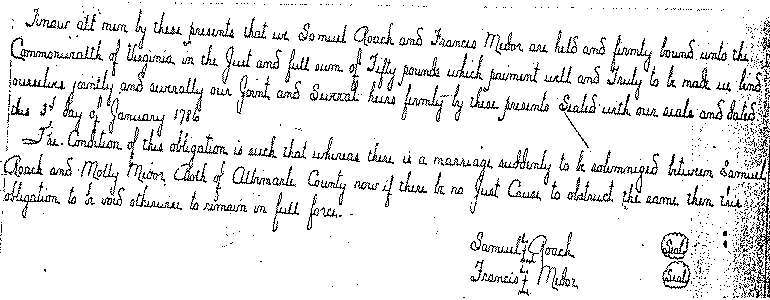 Know all men by these presents that we Samuel Roach and Francis Meder are held and firmly bound unto the
Commonwealth of Virginia in the Just and full sum of Fifty pounds which payment well and Truly to be made we bind
ourselves jointly and severally our Joint and Several heirs firmly by these presents Sealed with our seals and dated
this 3d day of January 1786
The Condition of this obligation is such that whereas there is a marriage suddenly to be solemnized between Samuel
Roach and Molly Meder Both of Albemarle County now if there be no Just Cause to obstruct the same then this
obligation to be void otherwise to remain in full force.
Samuel Roach Seal
Francis Meder Seal